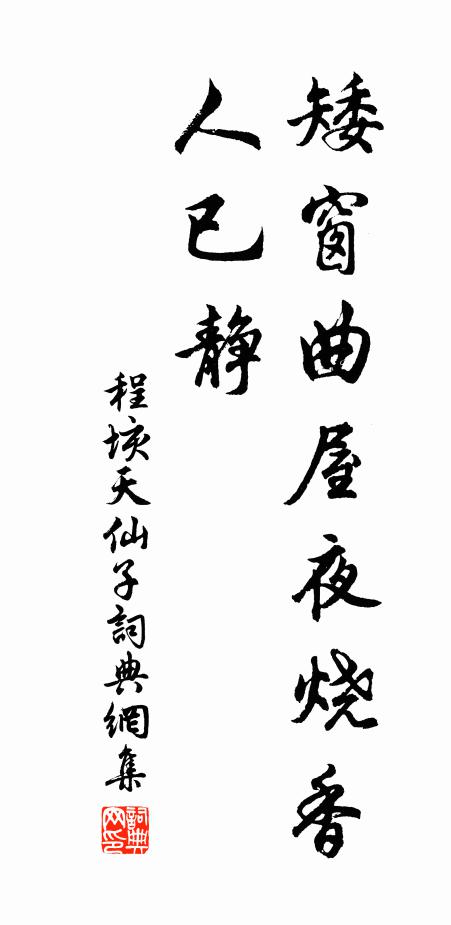 矮窗曲屋夜烧香
人已静
程垓天仙子詞典網集
詞典
网印